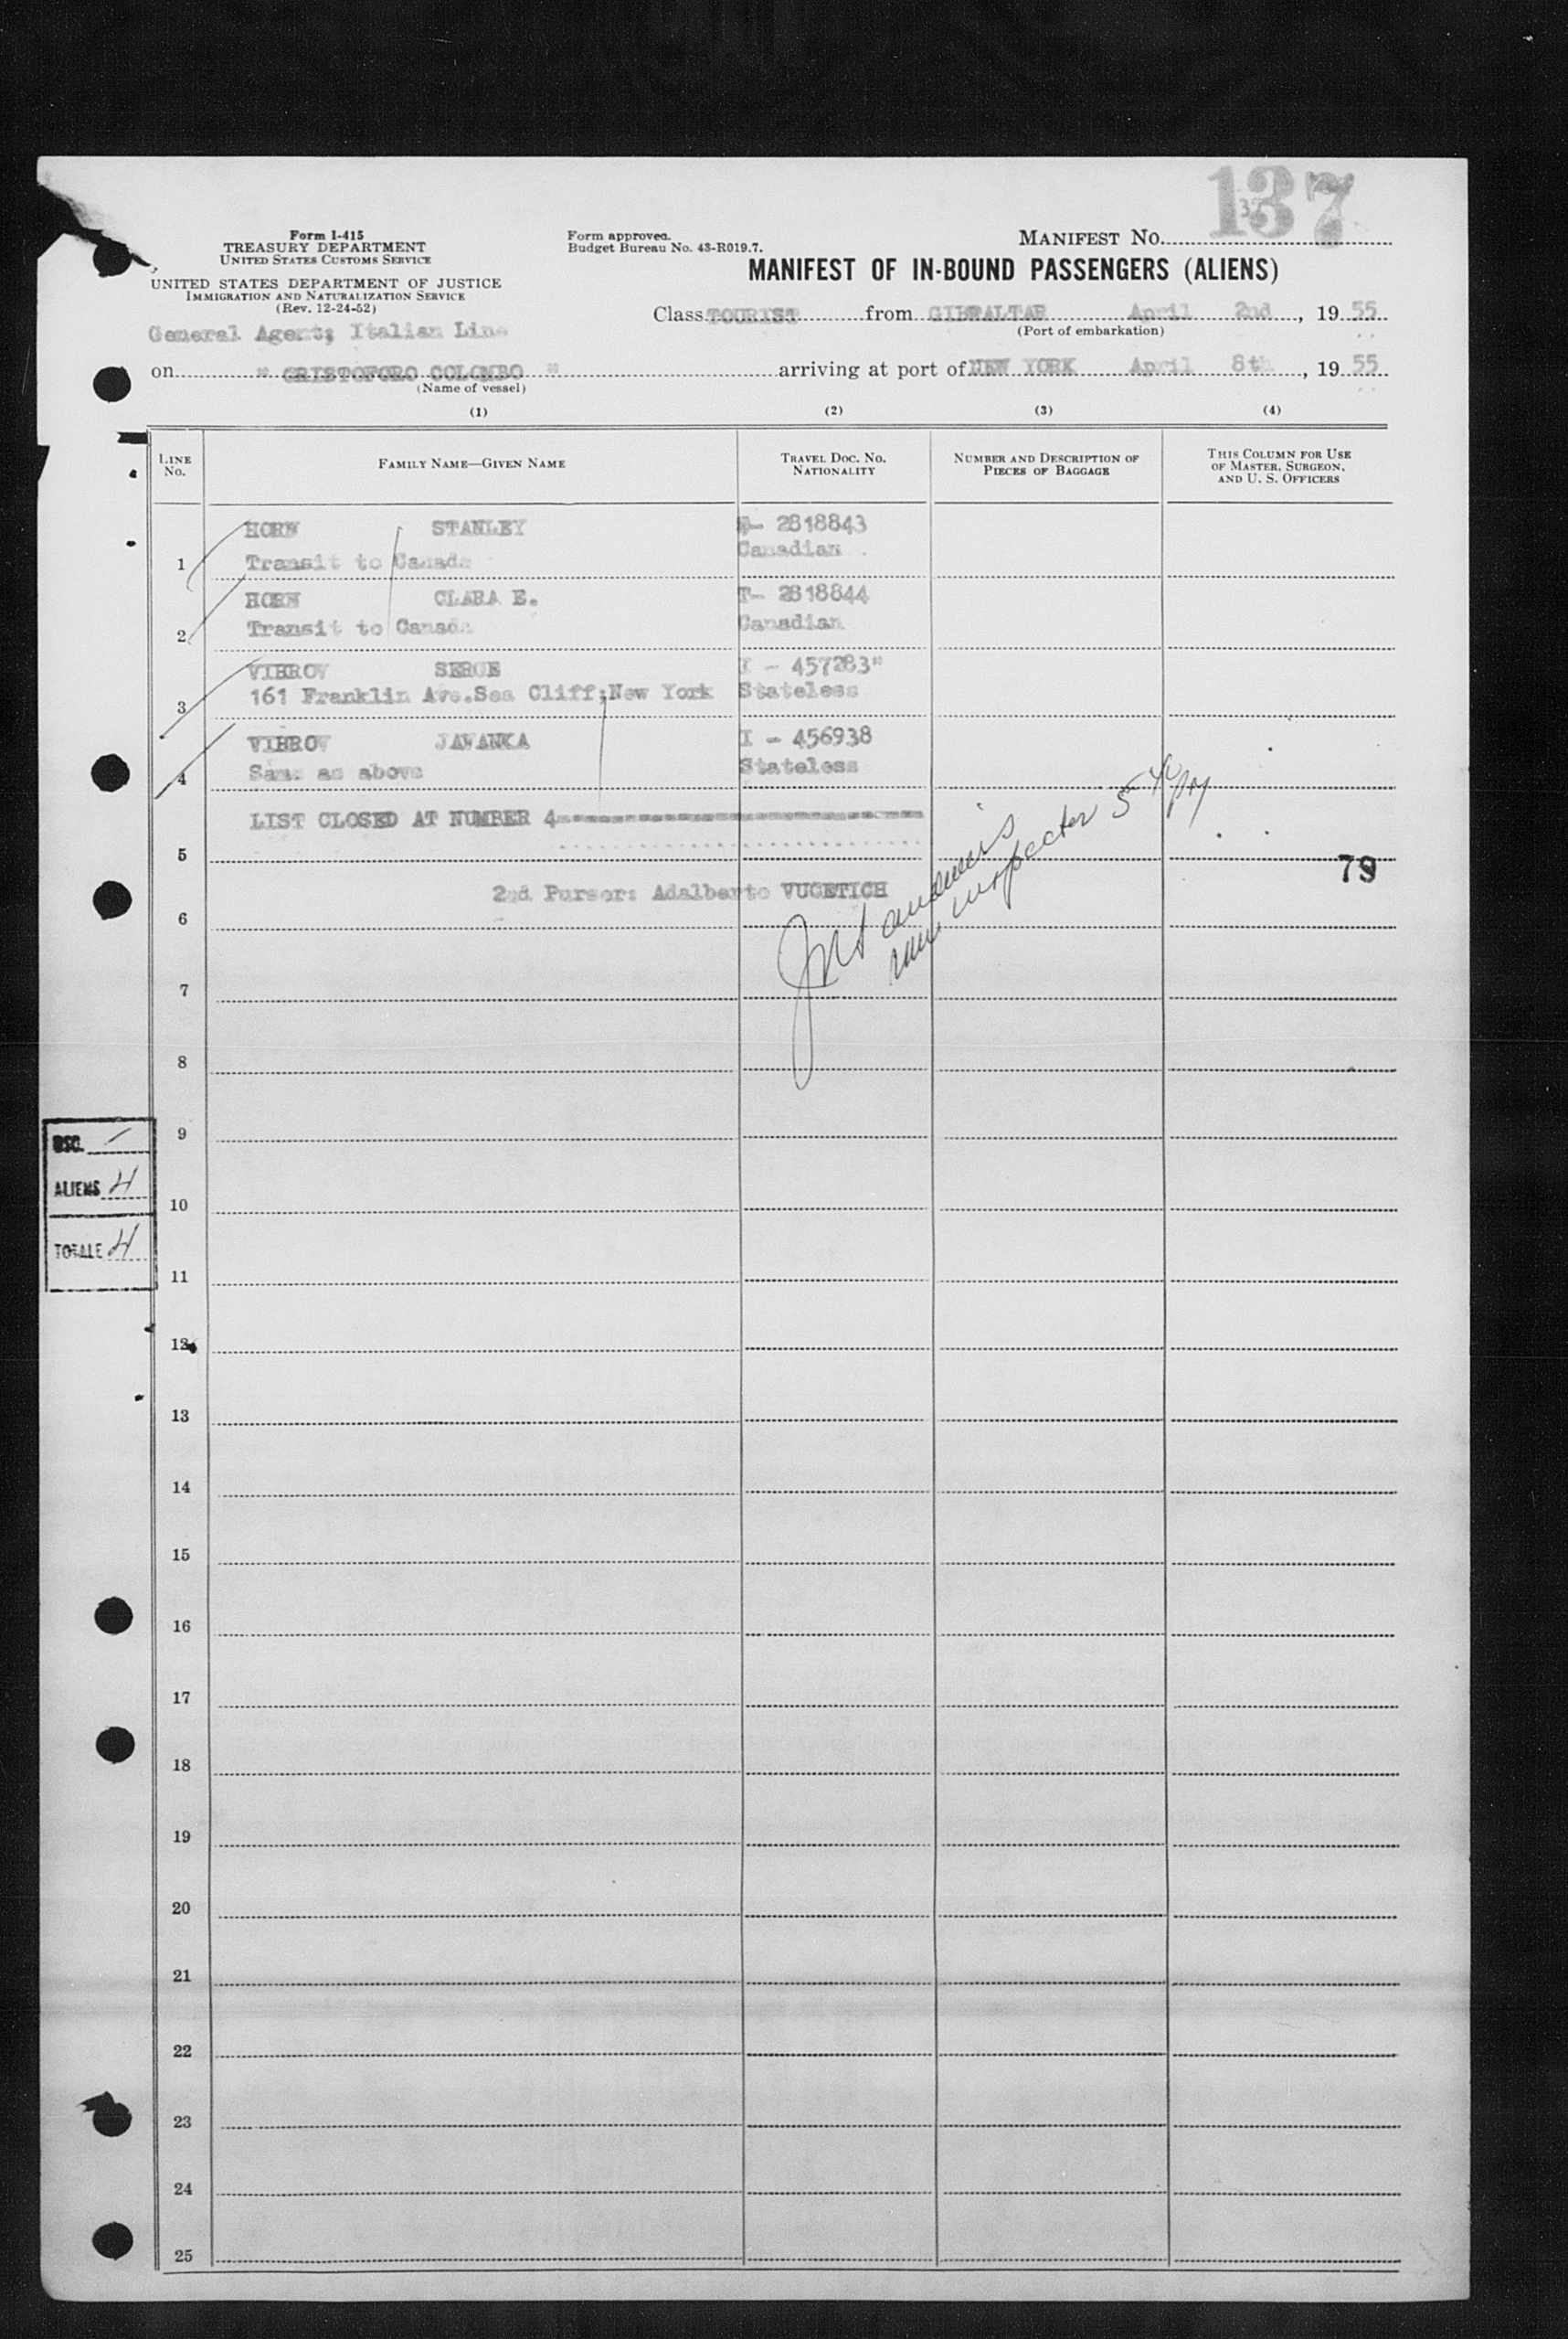 137
37
Form I-415
TREASURY DEPARTMENT
UNITED STATES CUSTOMS SERVICE
UNITED STATES DEPARTMENT OF JUSTICE
IMMIGRATION AND NATURALIZATION SERVICE
(Rev. 12-24-52)
Form approved.
Budget Bureau No. 43-R019.7.
MANIFEST NO.
MANIFEST OF IN-BOUND PASSENGERS (ALIENS)
General Agent; Italian Line
Class TOURIST from GIBRALTAR April 2nd, 1955
(Port of embarkation)
on " CRISTOFORO COLOMBO " arriving at port of NEW YORK April 8th, 1955
(Name of vessel)
(1) (2) (3) (4)
LINE NO. FAMILY NAME—GIVEN NAME TRAVEL DOC. NO. NATIONALITY NUMBER AND DESCRIPTION OF PIECES OF BAGGAGE THIS COLUMN FOR USE OF MASTER, SURGEON, AND U. S. OFFICERS
HORN STANLEY - 2818843
1 Transit to Canada Canadian
HORN CLARA E. T- 2818844
2 Transit to Canada Canadian
VIBROV SERGE I - 457283"
3 161 Franklin Ave.Sea Cliff;New York Stateless
VIBROV JAWANKA I - 456938
4 Same as above Stateless
LIST CLOSED AT NUMBER 4
5
79
2nd Purser: Adalberto VUCETICH
6
inspector 5
7
8
9
USC. /
ALIENS 4
10
TOTALE 4
11
12
13
14
15
16
17
18
19
20
21
22
23
24
25